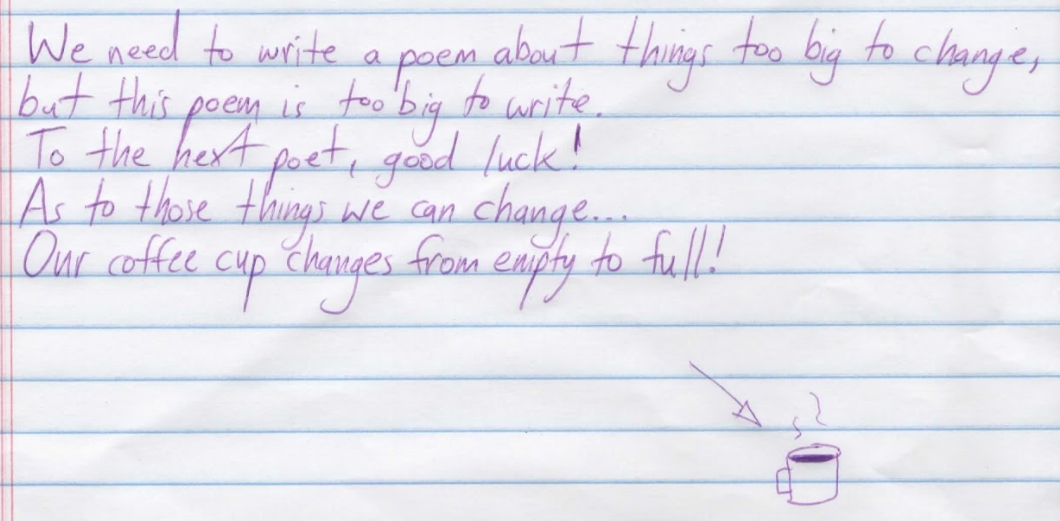 We need to write a poem about things too big to change,
but this poem is too big to write.
To the next poet, good luck!
As to those things we can change...
Our coffee cup changes from empty to full!